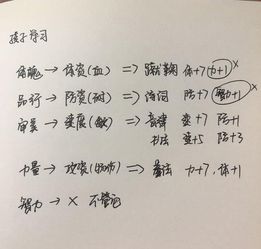 孩子学习
体魄 → 体资(血) => 蹴鞠 体+7 力+1 ×
品行 → 防资(耐) => 诗词 防+7 智力+1 ×
审美 → 速资(敏) => 音律 速+7 防+1
书法 速+5 防+3
力量 → 攻资() => 剑法 力+7、体+1
智力 → × 不管它